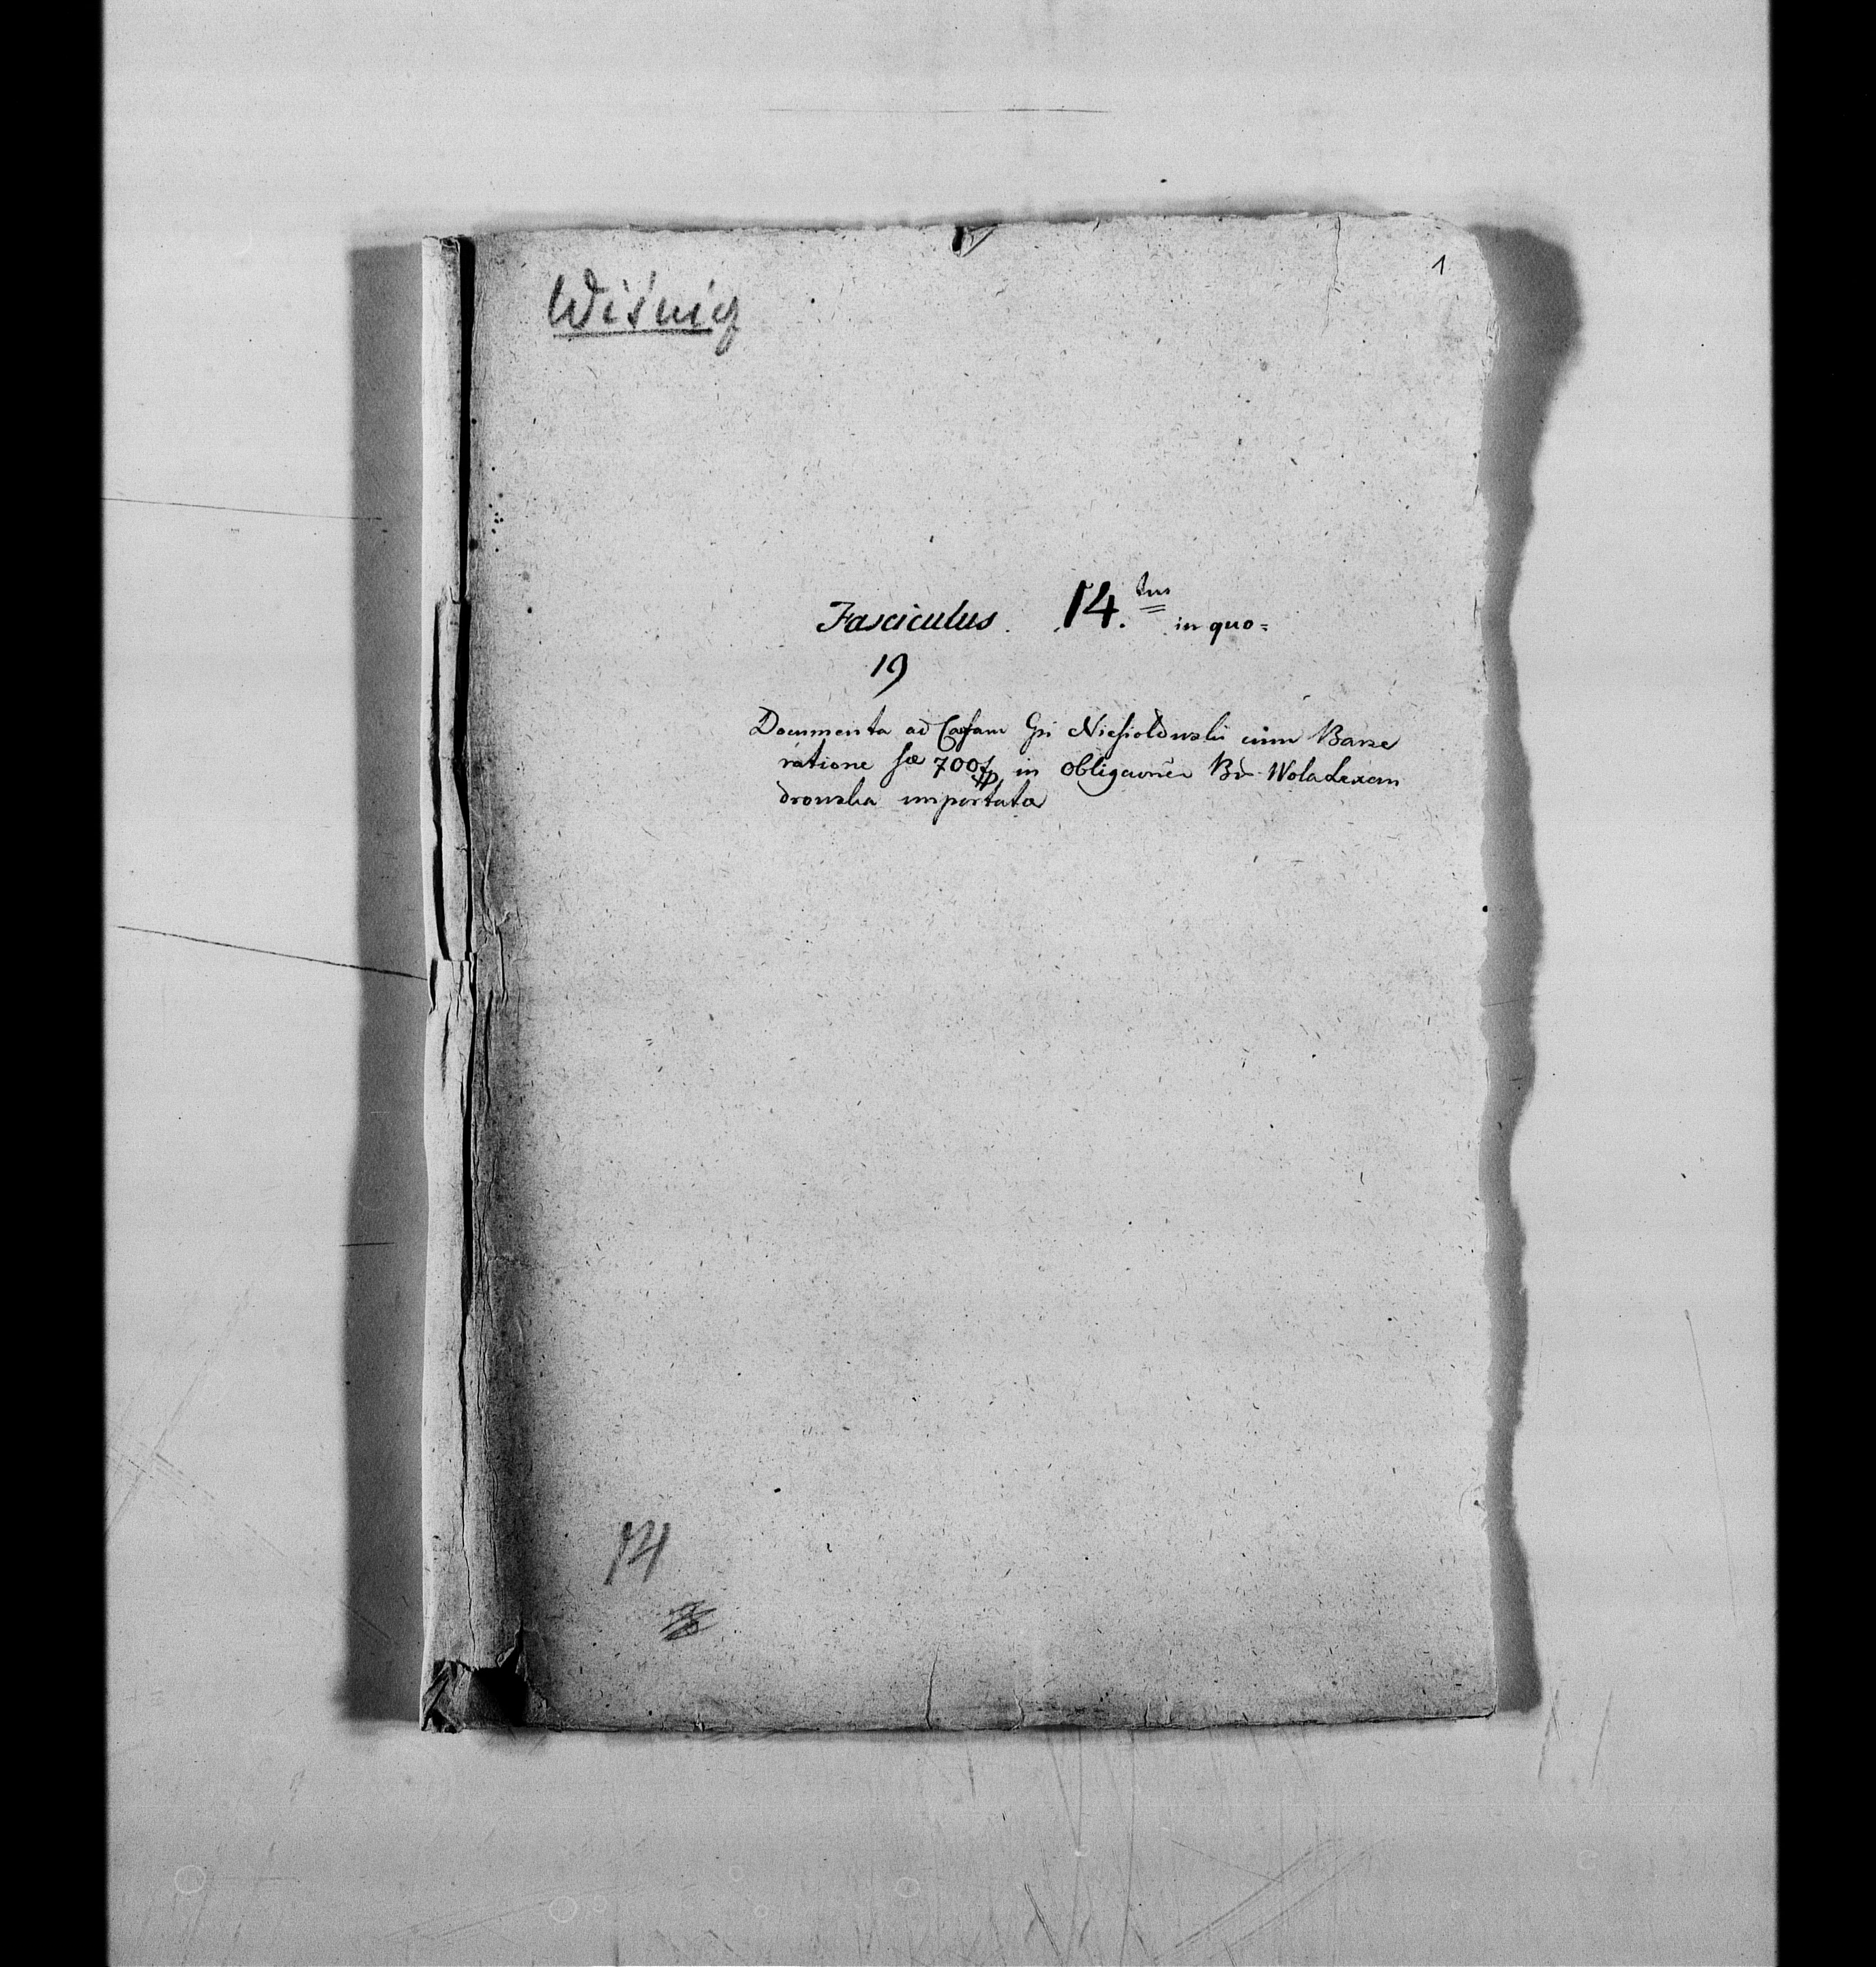 Wiśnicz
1
Fasciculus 14.tus in quo=
19
Documenta ad Causam Gsi Niesiołowski cum Barze
ratione sæ 700 in obligaonē Bd Wola Lexan
drowska importata
14